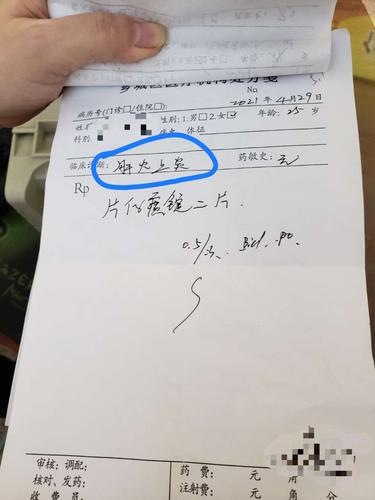 乡城区医疗机构处方笺
No
2021年4月29日
病历号(门诊□/住院□):
姓名 性别:1.男□2.女☑ 年龄:25岁
科别: 体征
临床诊断:肝火上炎 药敏史:无
Rp
片仔癀锭二片.
0.5/次、Bid. po.
审核: 调配: 药 费: 元 角
核对、发药: 注射费: 元 角
收 费 员: 其 他: 元 角 分